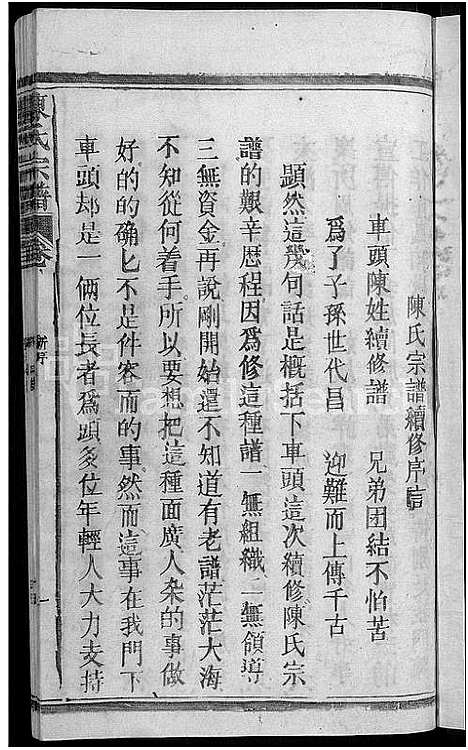 陳氏宗譜續修序言
車頭陳姓續修譜 兄弟团結不怕苦
爲了子孫世代昌 迎難而上傳千古
顯然這幾句話是概括下車頭這次續修陳氏宗
譜的艱辛歷程因爲修這種譜一無組織二無領導
三無資金再說剛開始還不知道有老譜茫茫大海
不知從何着手所以要想把這種面廣人杂的事做
好的的确匕不是件容而的事然而這事在我門下
車頭却是一俩位長者爲頭多位年輕人大力支持
陳氏宗譜
新序
一